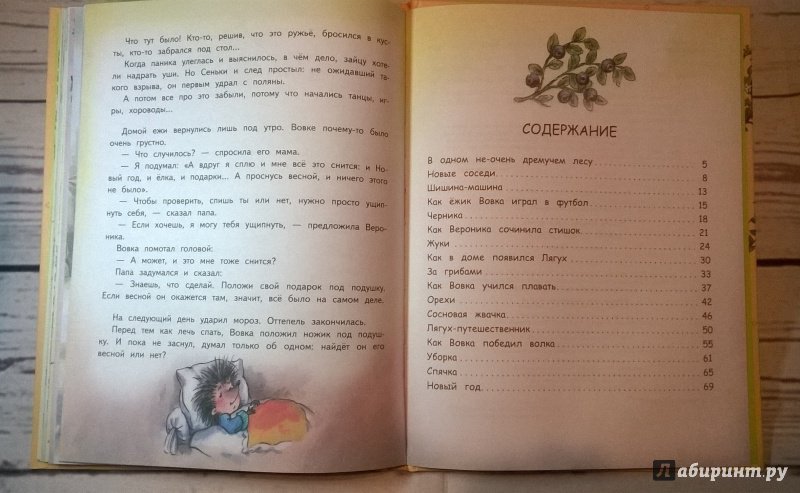 Что тут было! Кто-то, решив, что это ружьё, бросился в кус-
ты, кто-то забрался под стол...
Когда паника улеглась и выяснилось, в чём дело, зайцу хоте-
ли надрать уши. Но Сеньки и след простыл: не ожидавший та-
кого взрыва, он первым удрал с поляны.
А потом все про это забыли, потому что начались танцы, иг-
ры, хороводы...
Домой ежи вернулись лишь под утро. Вовке почему-то было
очень грустно.
— Что случилось? — спросила его мама.
— Я подумал: «А вдруг я сплю и мне всё это снится: и Но-
вый год, и ёлка, и подарки... А проснусь весной, и ничего этого
не было».
— Чтобы проверить, спишь ты или нет, нужно просто ущип-
нуть себя, — сказал папа.
— Если хочешь, я могу тебя ущипнуть, — предложила Веро-
ника.
Вовка помотал головой:
— А может, и это мне тоже снится?
Папа задумался и сказал:
— Знаешь, что сделай. Положи свой подарок под подушку.
Если весной он окажется там, значит, всё было на самом деле.
На следующий день ударил мороз. Оттепель закончилась.
Перед тем как лечь спать, Вовка положил ножик под подуш-
ку. И пока не заснул, думал только об одном: найдёт он его
весной или нет?
СОДЕРЖАНИЕ
В одном не-очень дремучем лесу 5
Новые соседи 8
Шишина-машина 13
Как ёжик Вовка играл в футбол 15
Черника 18
Как Вероника сочинила стишок 21
Жуки 24
Как в доме появился Лягух 30
За грибами 33
Как Вовка учился плавать 37
Орехи 42
Сосновая жвачка 46
Лягух-путешественник 50
Как Вовка победил волка 55
Уборка 61
Спячка 65
Новый год 69
Лабиринт.ру